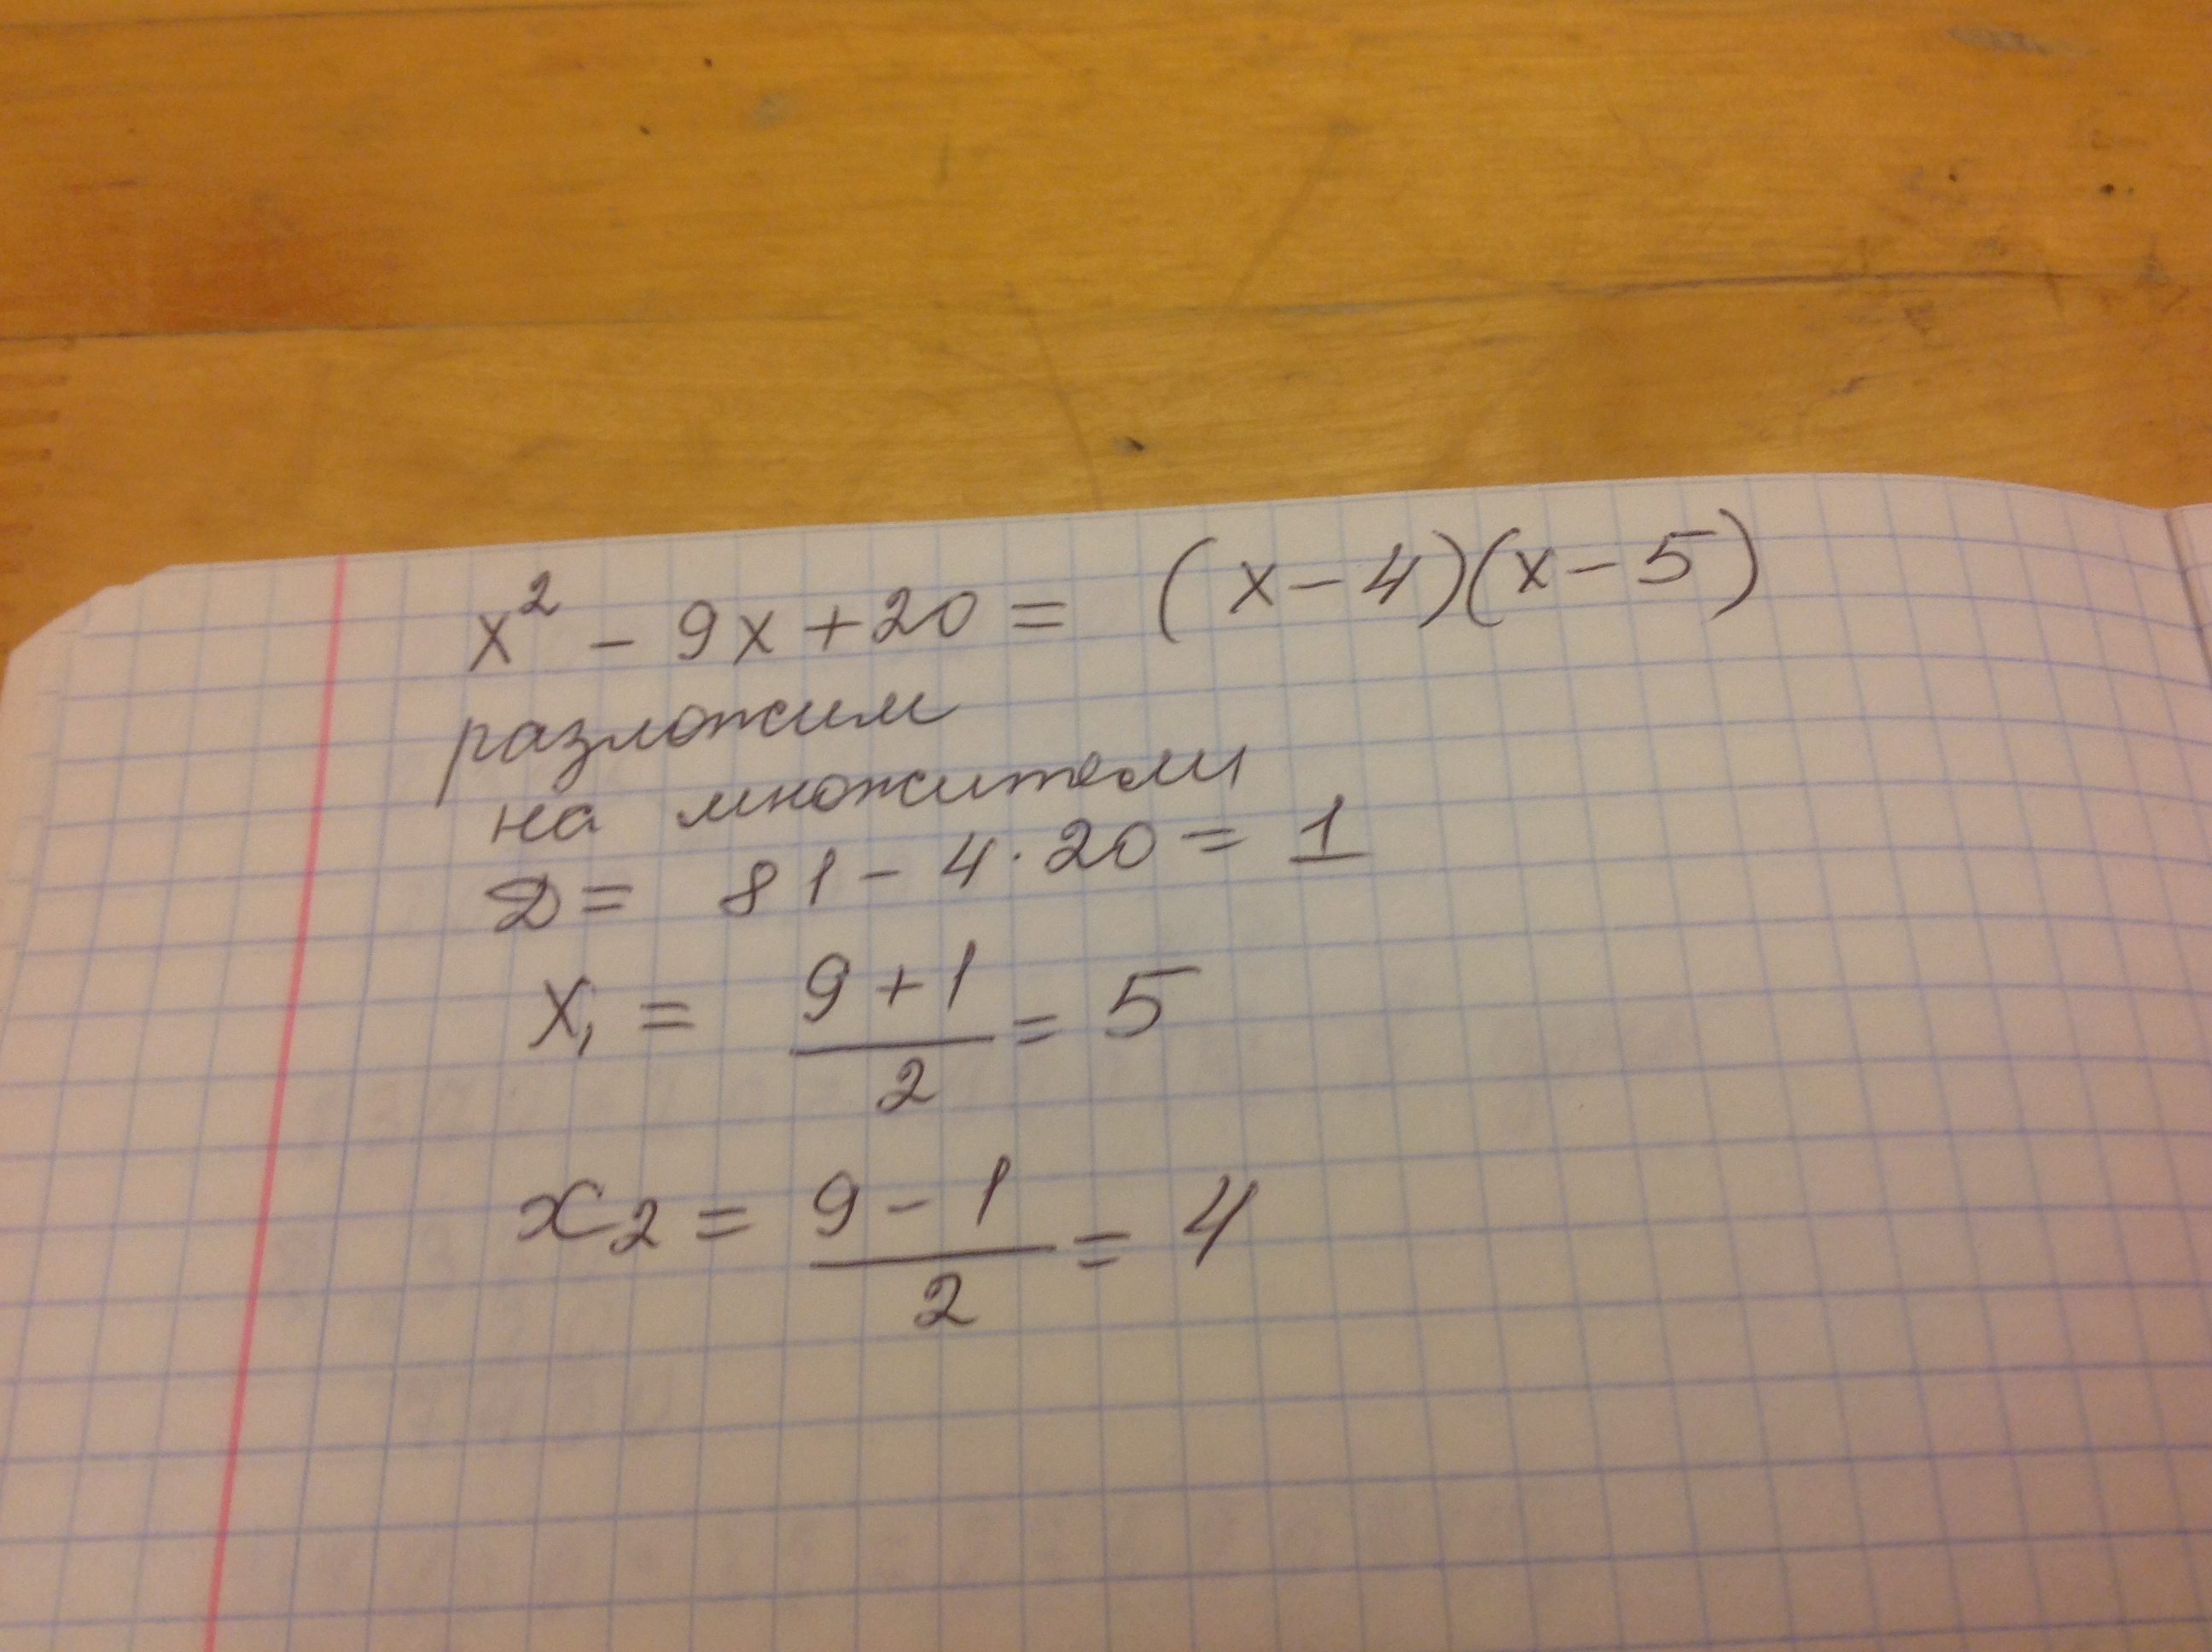 x² - 9x + 20 = (x - 4)(x - 5)
разложим
на множители
D = 81 - 4 · 20 = 1
x₁ = (9 + 1)/2 = 5
x₂ = (9 - 1)/2 = 4